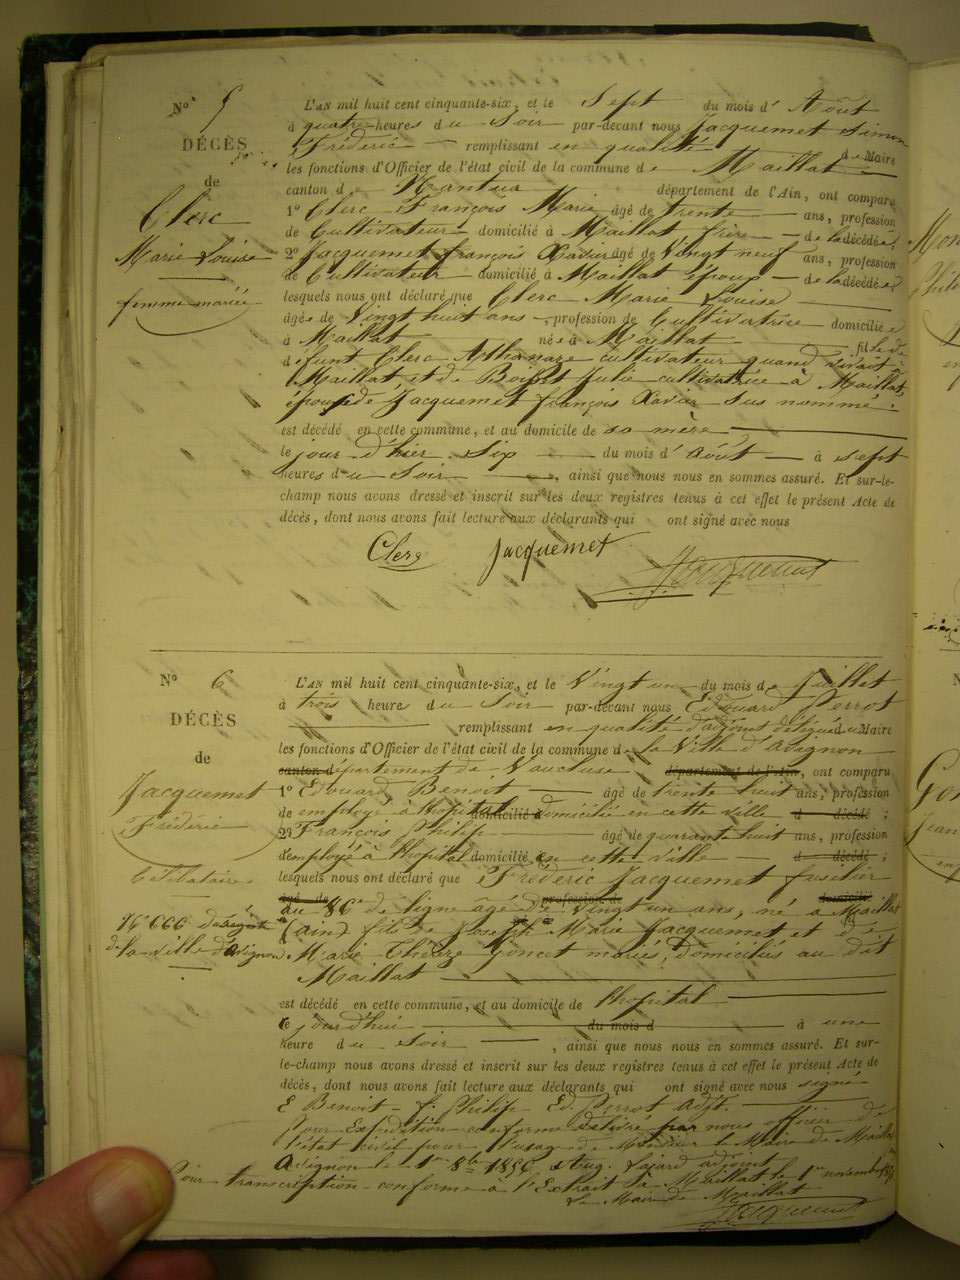 N° 5
DÉCÈS
de
Clerc
Marie Louise
femme mariée
L'AN mil huit cent cinquante-six, et le Sept du mois d' Août
à quatre heures du Soir par-devant nous Jacquemet Simon
Fréderic remplissant en qualité de Maire
les fonctions d'Officier de l'état civil de la commune de Maillat
canton d Nantua département de l'Ain, ont comparu
1° Clerc François Marie âgé de trente ans, profession
de Cultivateur domicilié à Maillat frère de la décédée;
2° Jacquemet françois Xavier âgé de Vingt neuf ans, profession
de Cultivateur domicilié à Maillat époux de la décédée;
lesquels nous ont déclaré que Clerc Marie Louise
âgée de Vingt huit ans, profession de Cultivatrice domiciliée
à Maillat née à Maillat fille de
défunt Clerc Athanaze cultivateur quand vivait à
Maillat et de Julie cultivatrice à Maillat,
épouse de Jacquemet françois Xavier sus nommé.
est décédé en cette commune, et au domicile de sa mère
le jour d'hier Six du mois d' Août à sept
heures du Soir, ainsi que nous nous en sommes assuré. Et sur-le-
champ nous avons dressé et inscrit sur les deux registres tenus à cet effet le présent Acte de
décès, dont nous avons fait lecture aux déclarants qui ont signé avec nous
Clerc Jacquemet Jacquemet
N° 6
DÉCÈS
de
Jacquemet
Fréderic
Celibataire
N° 666 du régistre
de la ville d'avignon
L'AN mil huit cent cinquante-six, et le Vingt un du mois de Juillet
à trois heure du Soir par-devant nous Edouard Perrot
remplissant en qualité d'adjoint délégué du Maire
les fonctions d'Officier de l'état civil de la commune de la Ville d'avignon
canton d département de Vaucluse département de l'Ain, ont comparu
1° Edouard Benoit âgé de trente huit ans, profession
de employé à l'hopital domicilié domicilié en cette ville d décédé;
2° François Philip âgé de quarante huit ans, profession
d'employé à l'hopital domicilié en cette ville d décédé;
lesquels nous ont déclaré que Fréderic Jacquemet fusilier
âgé de profession de domicilié
au 86e de ligne âgé de Vingt un ans, né à Maillat
(ain) fils de Joseph Marie Jacquemet et de
Marie Thérèze Goncet mariés, domiciliés au dit
Maillat
est décédé en cette commune, et au domicile de l'hopital
le jourd'hui du mois d à une
heure du Soir, ainsi que nous nous en sommes assuré. Et sur-
le-champ nous avons dressé et inscrit sur les deux registres tenus à cet effet le présent Acte de
décès, dont nous avons fait lecture aux déclarants qui ont signé avec nous signé
E Benoit - f. Philip - Ed. Perrot Adjt.
Pour Expédition conforme délivré par nous officier de
l'état civil pour l'usage de Monsieur le Maire de Maillat
Avignon le 1er 8bre 1856, adjoint
Pour transcription conforme à l'Extrait à Maillat le 1er novembre 1856
Le Maire de Maillat
Jacquemet